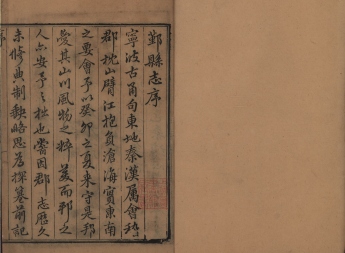 鄞縣志序
寧波古甬句東地秦漢屬會稽
郡枕山臂江抱負滄海實東南
之要會予以癸卯之夏來守是邦
愛其山川風物之粹美而郡之
人亦安予之拙也嘗因郡志歷久
未修典制缺略思為採纂前記
序